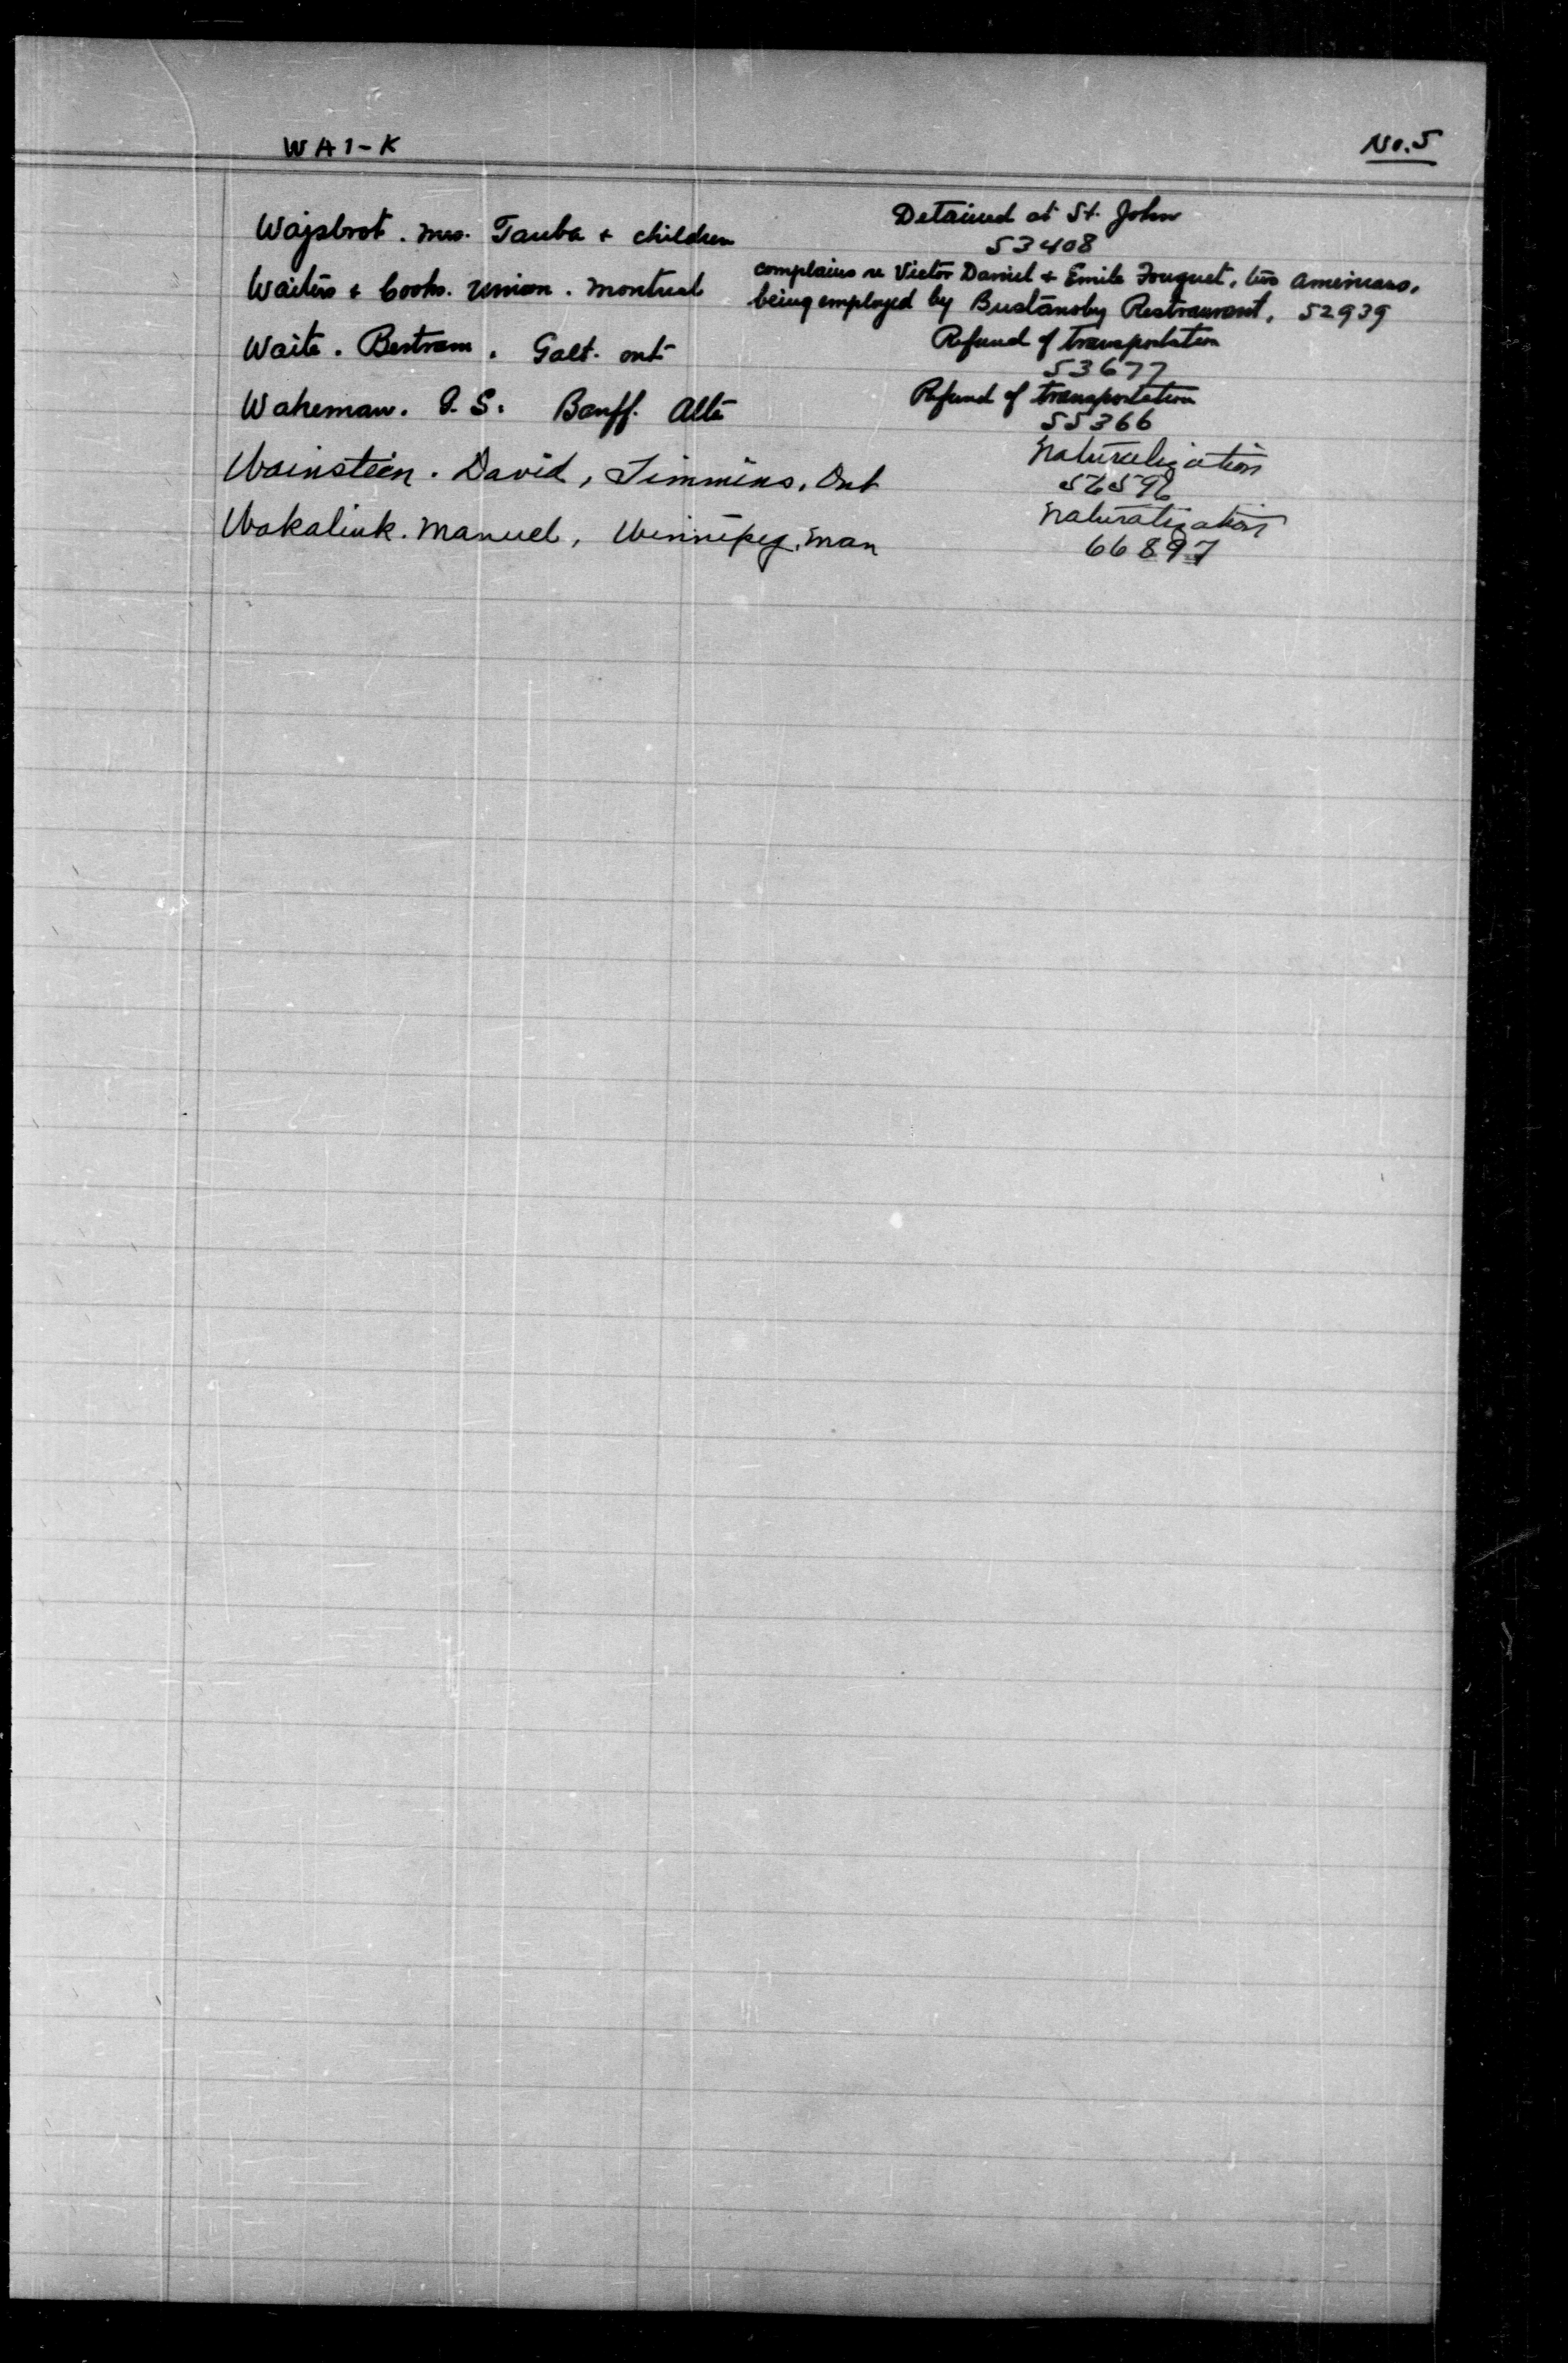 WAI-K
No. 5
Wajsbrot. Mrs. Tauba + children
Detained at St. John
53408
Waiters + Cooks. Union. Montreal
complains re Victor Daniel + Emile Fouquet, two Americans,
being employed by Bustanoby Restraurant, 52939
Waite. Bertram. Galt. Ont
Refund of transportation
53677
Wakeman. S. Banff. Alta
Refund of transportation
55366
Wainstein. David, Timmins, Ont
Naturalization
56596
Wakaliuk. Manuel, Winnipeg, Man
Naturalization
66897